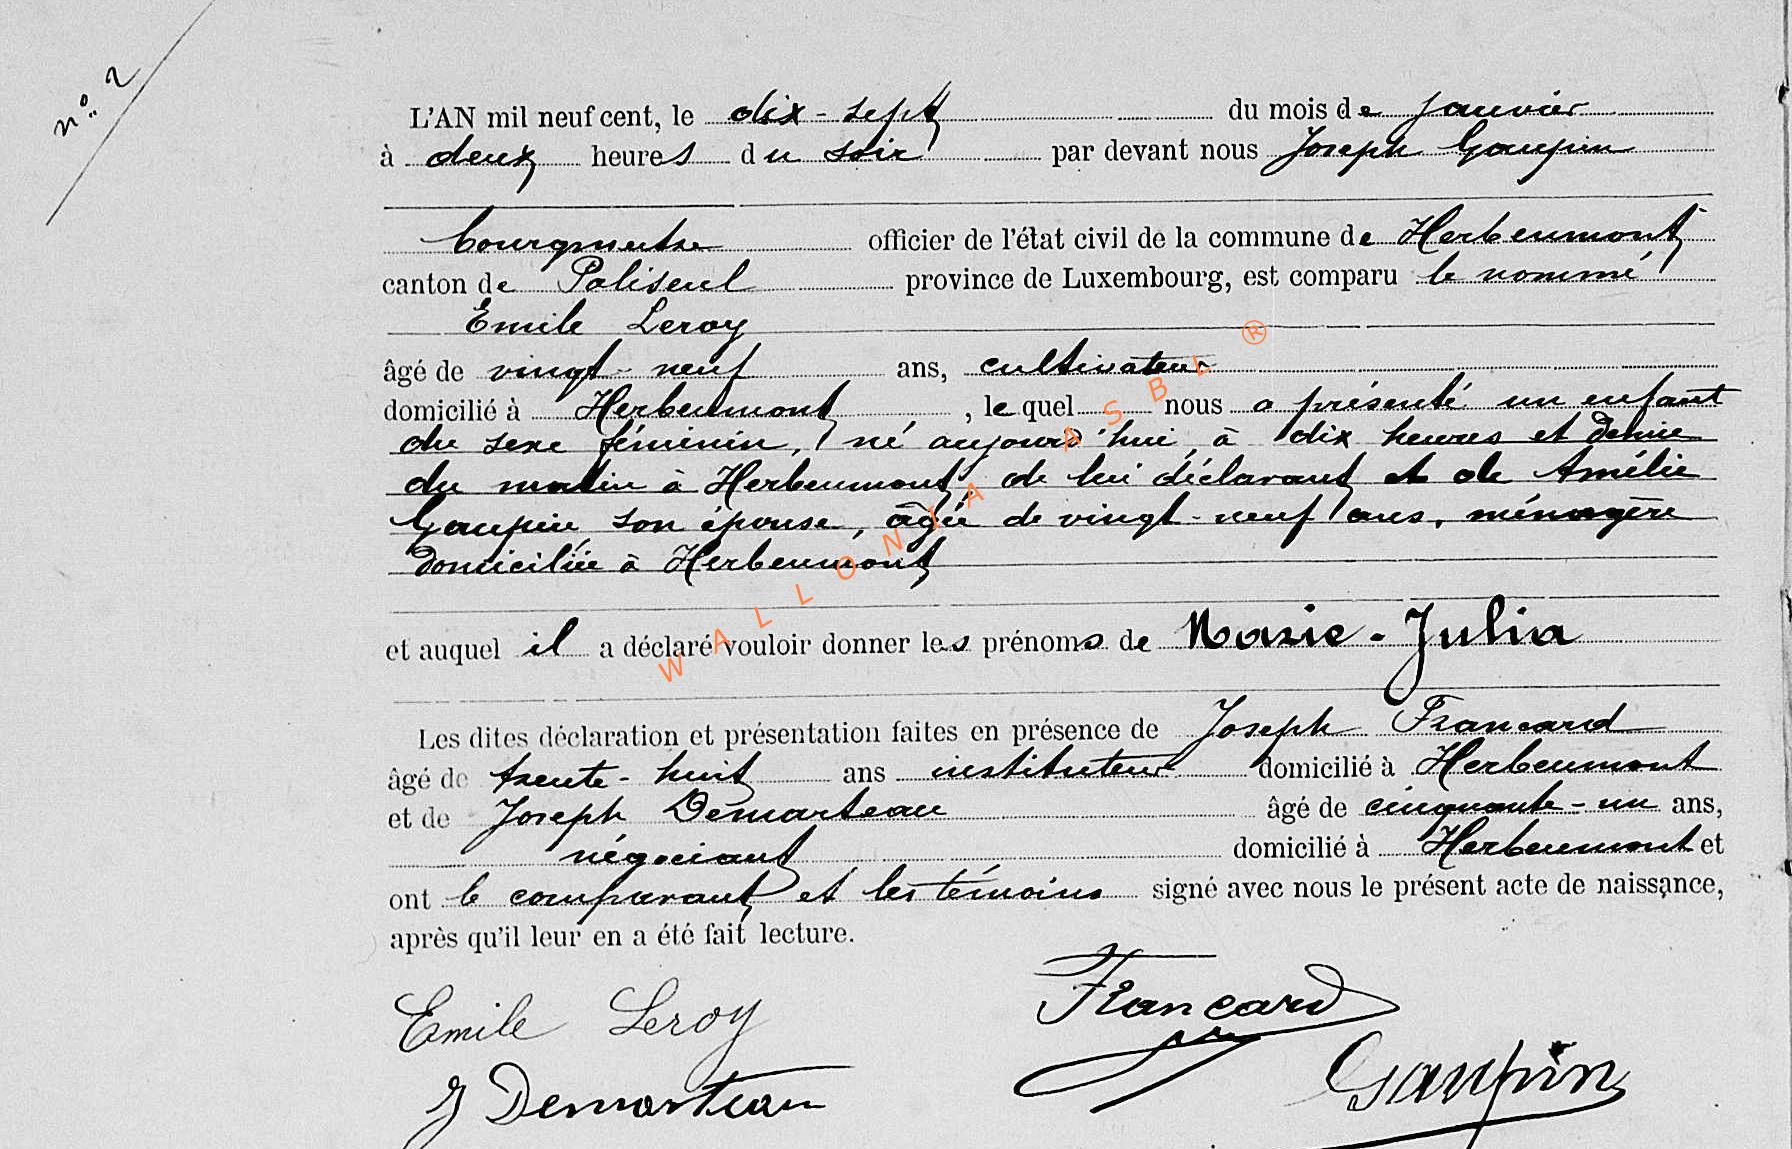 n° 2
L'AN mil neuf cent, le dix-sept du mois de janvier
à deux heures du soir par devant nous Joseph Gaupin
bourgmestre officier de l'état civil de la commune de Herbeumont
canton de Paliseul province de Luxembourg, est comparu le nommé
Emile Leroy
âgé de vingt-neuf ans, cultivateur
domicilié à Herbeumont, lequel nous a présenté un enfant
du sexe féminin, né aujourd'hui, à dix heures et demie
du matin à Herbeumont, de lui déclarant et de Amélie
Gaupin, son épouse, âgée de vingt-neuf ans, ménagère
domiciliée à Herbeumont
et auquel il a déclaré vouloir donner les prénoms de Marie-Julia
Les dites déclaration et présentation faites en présence de Joseph Francard
âgé de trente-huit ans instituteur domicilié à Herbeumont
et de Joseph Demarteau âgé de cinquante-un ans,
négociant domicilié à Herbeumont et
ont le comparant et les témoins signé avec nous le présent acte de naissance,
après qu'il leur en a été fait lecture.
Emile Leroy Francard
J Demarteau Gaupin
WALLONIA ASBL ®